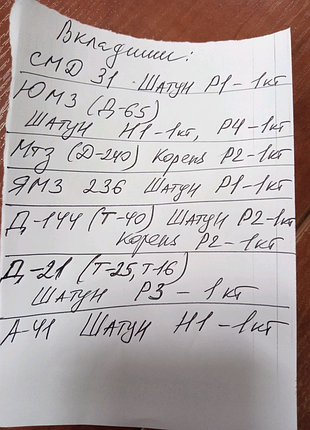 Вкладиши:
СМД 31 Шатун Р1 - 1кт
ЮМЗ (Д-65)
Шатун Н1-1кт, Р4-1кт
МТЗ (Д-240) Корень Р2-1кт
ЯМЗ 236 Шатун Р1-1кт
Д-144 (Т-40) Шатун Р2-1кт
Корень Р2-1кт
Д-21 (Т-25, Т-16)
Шатун Р3 - 1кт
А-41 Шатун Н1-1кт